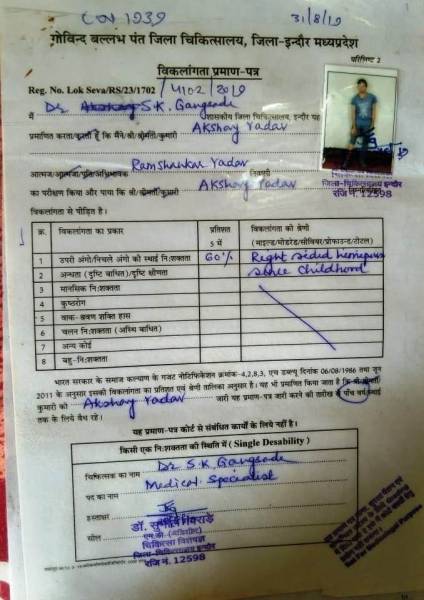 COV 1939
31/8/19
गोविन्द बल्लभ पंत जिला चिकित्सालय, जिला-इन्दौर मध्यप्रदेश
परिशिष्ट 2
विकलांगता प्रमाण-पत्र
Reg. No. Lok Seva/RS/23/1702 / 4102 / 2019
मैं Dr. S.K. Gangrade शासकीय जिला चिकित्सालय, इन्दौर यह
प्रमाणित करता/करती हूँ कि मैंने/श्री/श्रीमती/कुमारी Akshay Yadav
आत्मज/आत्मजा/पति/अभिभावक Ramshankar Yadav निवासी
का परीक्षण किया और पाया कि श्री/श्रीमती/कुमारी Akshay Yadav
जिला-चिकित्सालय इन्दौर
रजि नं. 12598
विकलांगता से पीड़ित है।
क्र. विकलांगता का प्रकार प्रतिशत % में विकलांगता की श्रेणी
(माइल्ड/मोडरेड/सीवियर/प्रोफाउन्ड/टोटल)
1 उपरी अंगो/निचले अंगो की स्थाई निःशक्तता 60% Right sided
2 अन्धता (दृष्टि बाधित)/दृष्टि क्षीणता since childhood
3 मानसिक निःशक्तता
4 कुष्ठरोग
5 वाक-श्रवण शक्ति हास
6 चलन निःशक्तता (अस्थि बाधित)
7 अन्य कोई
8 बहु-निःशक्तता
भारत सरकार के समाज कल्याण के गजट नोटिफिकेशन क्रमांक-4,2,8,3, एच डब्ल्यू दिनांक 06/08/1986 तथा जून
2011 के अनुसार इसकी विकलांगता का प्रतिशत एवं श्रेणी तालिका अनुसार है। यह भी प्रमाणित किया जाता है कि श्री/श्रीमती/
कुमारी को Akshay Yadav जारी यह प्रमाण-पत्र जारी करने की तारीख से पाँच वर्ष/स्थाई
तक के लिये वैध रहे।
यह प्रमाण-पत्र कोर्ट से संबंधित कार्यों के लिये नहीं है।
किसी एक निःशक्तता की स्थिति में ( Single Desability )
चिकित्सक का नाम Dr. S.K. Gangrade
पद का नाम Medical Specialist
हस्ताक्षर
सील
चिकित्सा विशेषज्ञ
जिला-चिकित्सालय इन्दौर
रजि नं. 12598